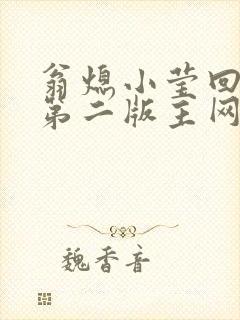 翁熄小莹回
第二版主网
魏香音